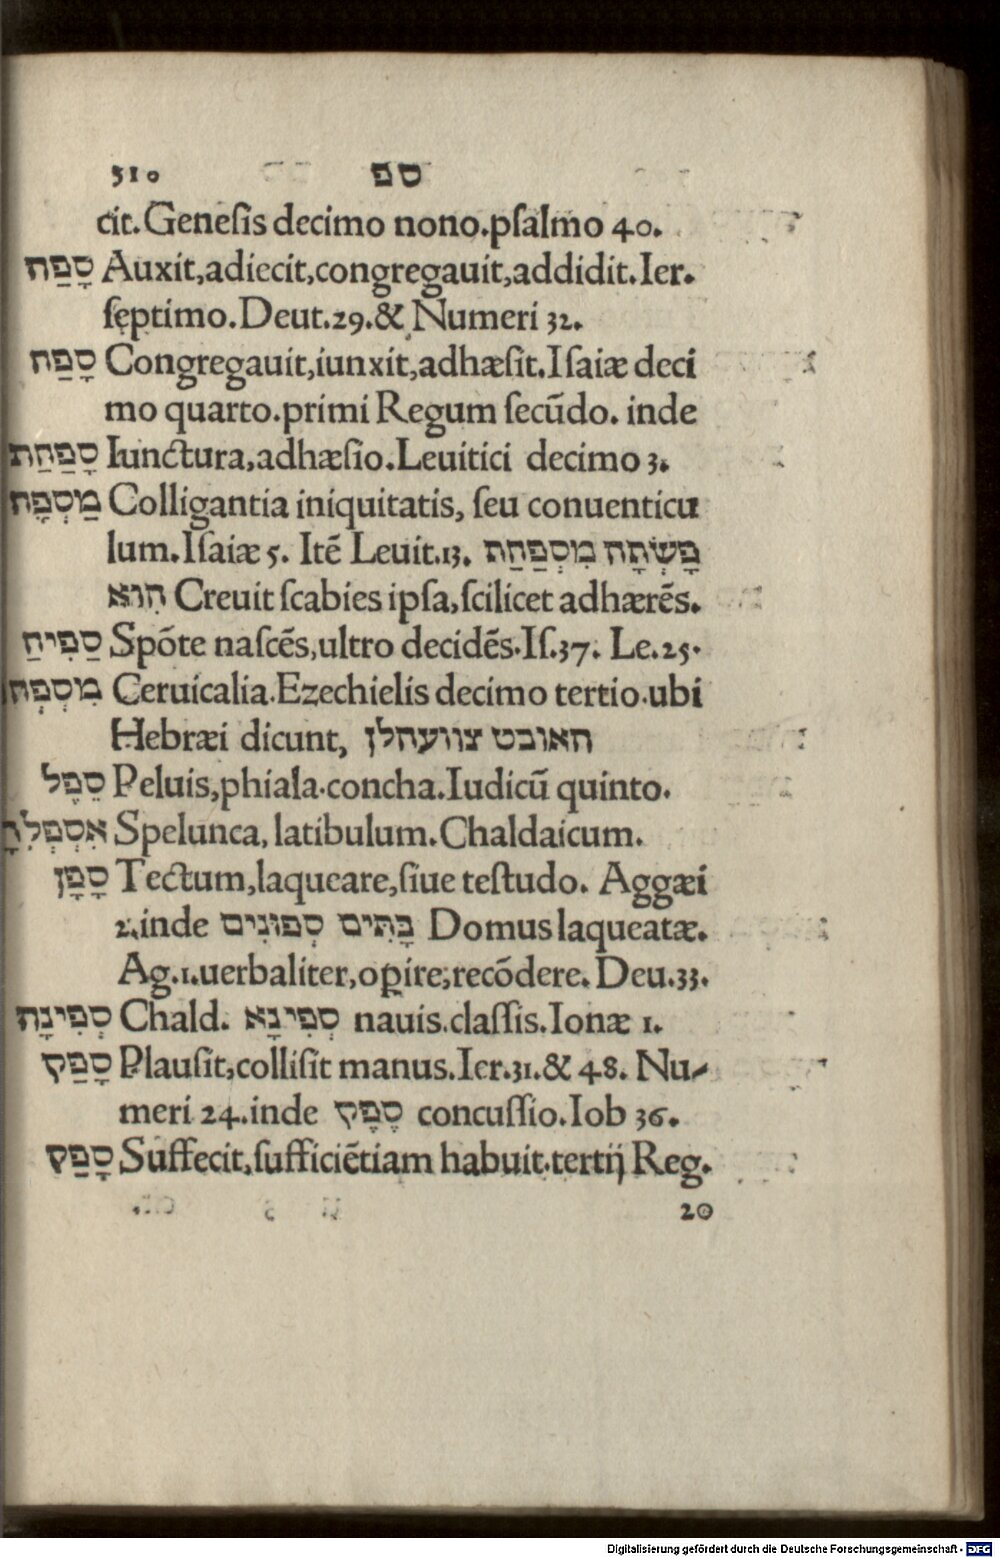 310 ספ
cit. Geneſis decimo nono. pſalmo 40.
סָפַח Auxit, adiecit, congregauit, addidit. Ier.
ſeptimo. Deut. 29. & Numeri 32.
סָפַח Congregauit, iunxit, adhæſit. Iſaiæ deci
mo quarto. primi Regum ſecūdo. inde
סָפַחַת Iunctura, adhæſio. Leuitici decimo 3.
מַסְפָּח Colligantia iniquitatis, ſeu conuenticu
lum. Iſaiæ 5. Itē Leuit. 13. פָּשְׂתָה מִסְפַּחַת
הִוא Creuit ſcabies ipſa, ſcilicet adhærēs.
סַפִיחַ Spōte naſcēs, ultro decidēs. Iſ. 37. Le. 25.
Ceruicalia. Ezechielis decimo tertio. ubi
Hebræi dicunt, האובט צוועחלן
סֵפֶל Peluis, phiala. concha. Iudicū quinto.
Spelunca, latibulum. Chaldaicum.
סָפָן Tectum, laqueare, ſiue teſtudo. Aggæi
2. inde בָּתִּים סְפוּנִים Domus laqueatæ.
Ag. 1. uerbaliter, oꝑire, recōdere. Deu. 33.
סְפִינָה Chald. סְפִינָא nauis. claſſis. Ionæ 1.
סָפַק Plauſit, colliſit manus. Ier. 31. & 48. Nu-
meri 24. inde סֶפֶק concuſſio. Iob 36.
סָפַק Suffecit, ſufficiētiam habuit. tertij Reg.
20
Digitalisierung gefördert durch die Deutsche Forschungsgemeinschaft - DFG